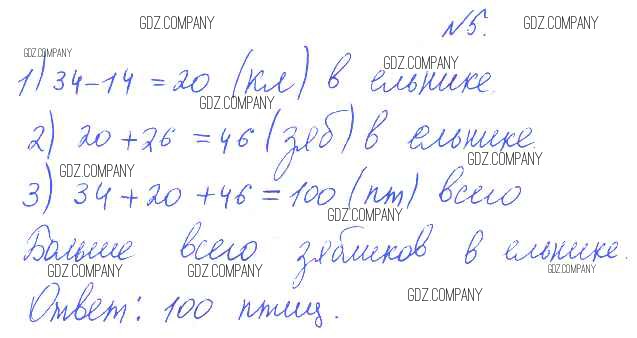 GDZ.COMPANY №5. GDZ.COMPANY
GDZ.COMPANY
1) 34-14 = 20 (кл) в ельнике.
GDZ.COMPANY
GDZ.COMPANY
2) 20+26 = 46 (зяб) в ельнике.
GDZ.COMPANY
GDZ.COMPANY
3) 34+20+46 = 100 (пт) всего
GDZ.COMPANY
Больше всего зябликов в ельнике.
GDZ.COMPANY GDZ.COMPANY GDZ.COMPANY
Ответ: 100 птиц.
GDZ.COMPANY